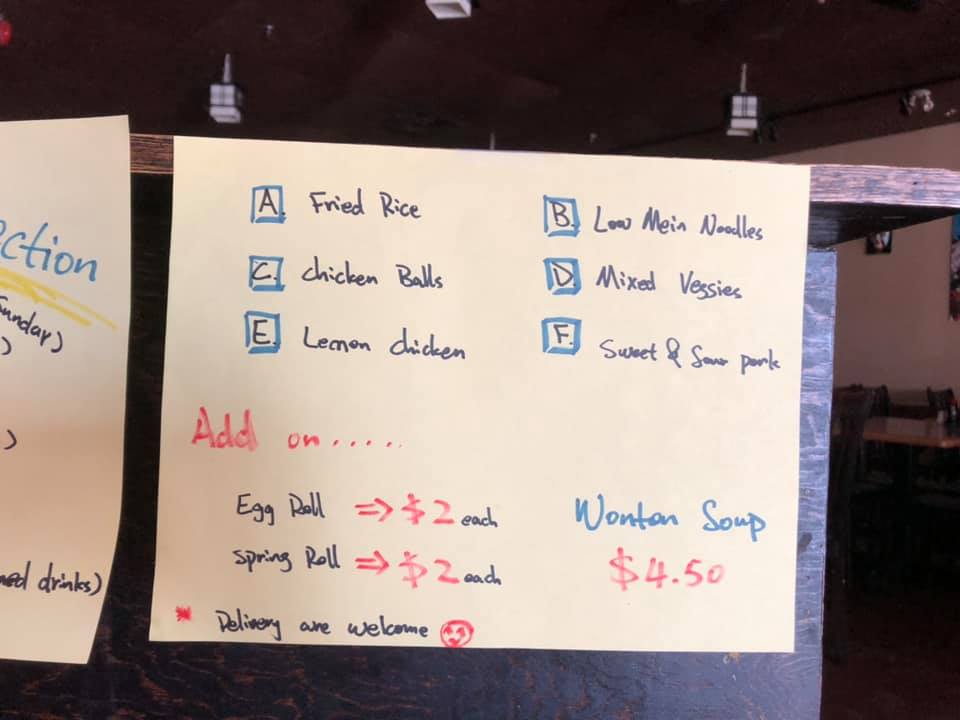 ction
Sunday)
)
)
ned drinks)
A. Fried Rice
B. Low Mein Noodles
C. Chicken Balls
D. Mixed Veggies
E. Lemon chicken
F. Sweet & Sour pork
Add on.....
Egg Roll ⇒ $2 each
Spring Roll ⇒ $2 each
Wonton Soup
$4.50
* Delivery are welcome